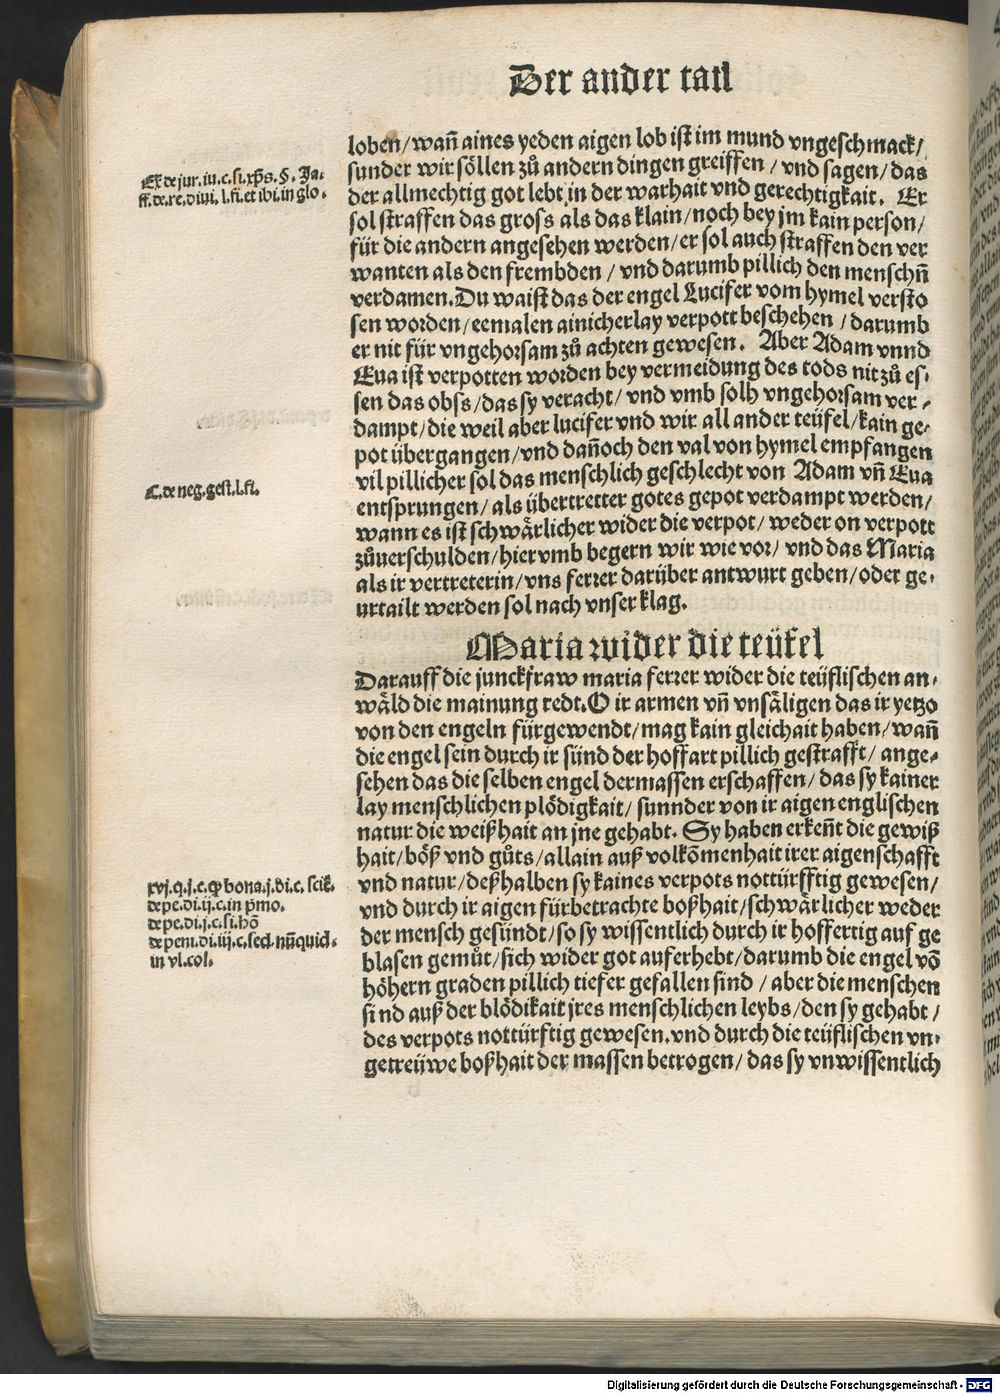 Der ander tail
loben/wañ aines yeden aigen lob ist im mund vngeschmack/
sunder wir söllen zů andern dingen greiffen/vnd sagen/das
der allmechtig got lebt in der warhait vnd gerechtigkait. Er
sol straffen das gross als das klain/noch bey jm kain person/
für die andern angesehen werden/er sol auch straffen den ver
wanten als den frembden/vnd darumb pillich den menschñ
verdamen. Du waist das der engel Lucifer vom hymel versto
sen worden/eemalen ainicherlay verpott beschehen/darumb
er nit für vngehorsam zů achten gewesen. Aber Adam vnnd
Eua ist verpotten worden bey vermeidung des tods nit zů es⸗
sen das obs/das sy veracht/vnd vmb solh vngehorsam ver⸗
dampt/die weil aber lucifer vnd wir all ander teüfel/kain ge⸗
pot übergangen/vnd dañoch den val von hymel empfangen
vil pillicher sol das menschlich geschlecht von Adam vñ Eua
entsprungen/als übertretter gotes gepot verdampt werden/
wann es ist schwärlicher wider die verpot/weder on verpott
zůuerschulden/hiervmb begern wir wie vor/vnd das Maria
als ir vertreterin/vns ferrer darüber antwurt geben/oder ge⸗
urtailt werden sol nach vnser klag.
Maria wider die teüfel
Darauff die junckfraw maria ferrer wider die teüflischen an⸗
wäld die mainung redt. O ir armen vñ vnsäligen das ir yetzo
von den engeln fürgewendt/mag kain gleichait haben/wañ
die engel sein durch ir sünd der hoffart pillich gestrafft/ange⸗
sehen das die selben engel dermassen erschaffen/das sy kainer
lay menschlichen plödigkait/sunnder von ir aigen englischen
natur die weißhait an jne gehabt. Sy haben erkeñt die gewiß
hait/böß vnd gůts/allain auß volkõmenhait irer aigenschafft
vnd natur/deßhalben sy kaines verpots nottürfftig gewesen/
vnd durch ir aigen fürbetrachte boßhait/schwärlicher weder
der mensch gesündt/so sy wissentlich durch ir hoffertig auf ge
blasen gemůt/sich wider got auferhebt/darumb die engel võ
höhern graden pillich tiefer gefallen sind/aber die menschen
sind auß der blödikait jres menschlichen leybs/den sy gehabt/
des verpots nottürftig gewesen. vnd durch die teüflischen vn⸗
getreüwe boßhait der massen betrogen/das sy vnwissentlich
Ex de jur. iu. c. si. xp̃s. §. Ja⸗
ff. de. re. diui. l. fi. et ibi. in glo.
C. de neg. gest. l. fi.
xvj. q. j. c. bona. j. di. c. scić.
de pe. di. ij. c. in pmo.
de pe. di. j. c. si. hõ
de peni. di. iij. c. sed. nũquid.
in vl. col.
Digitalisierung gefördert durch die Deutsche Forschungsgemeinschaft - DFG